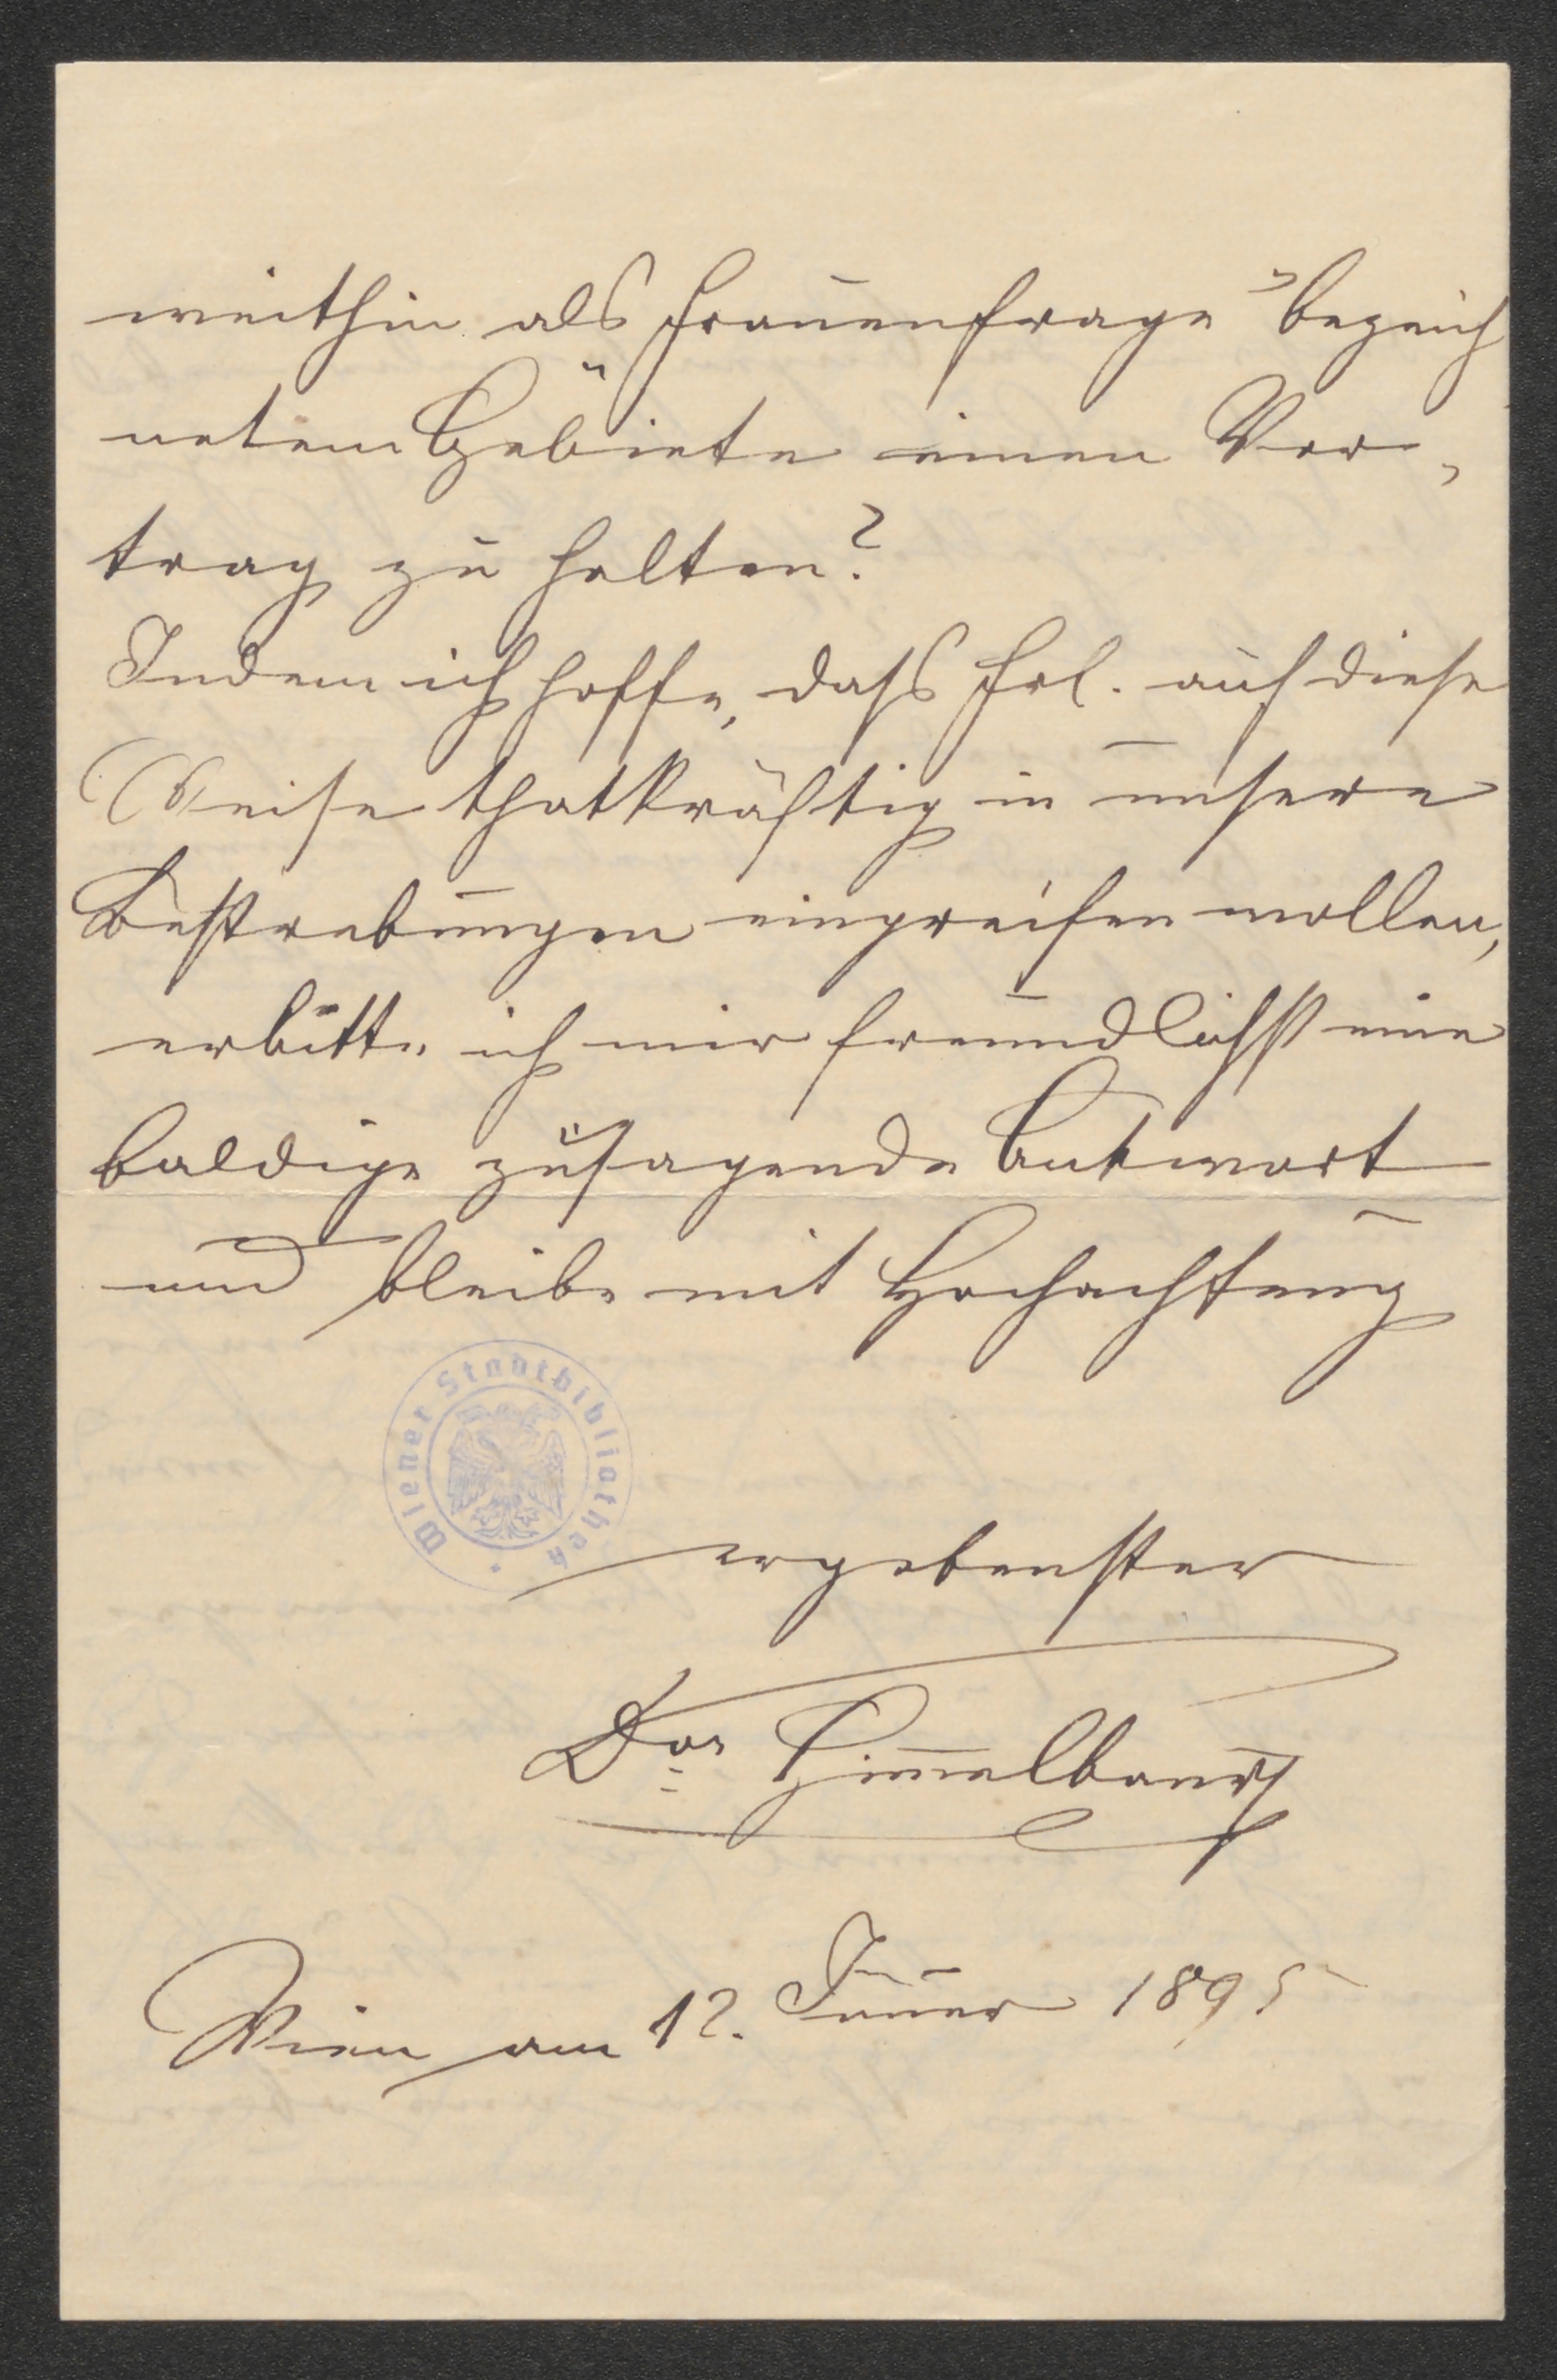 weithin als „Frauenfrage“ bezeich
netem Gebiete einen Vor-
trag zu halten?
Indem ich hoffe, dass Frl. auf diese
Weise thatkräftig in unsere
Bestrebungen eingreifen wollen,
erbitte ich mir freundlichst eine
baldige zusagende Antwort
und bleibe mit Hochachtung
Wiener Stadtbibliothek
ergebenster
Dor Himmelbaur
Wien am 12. Jänner 1895